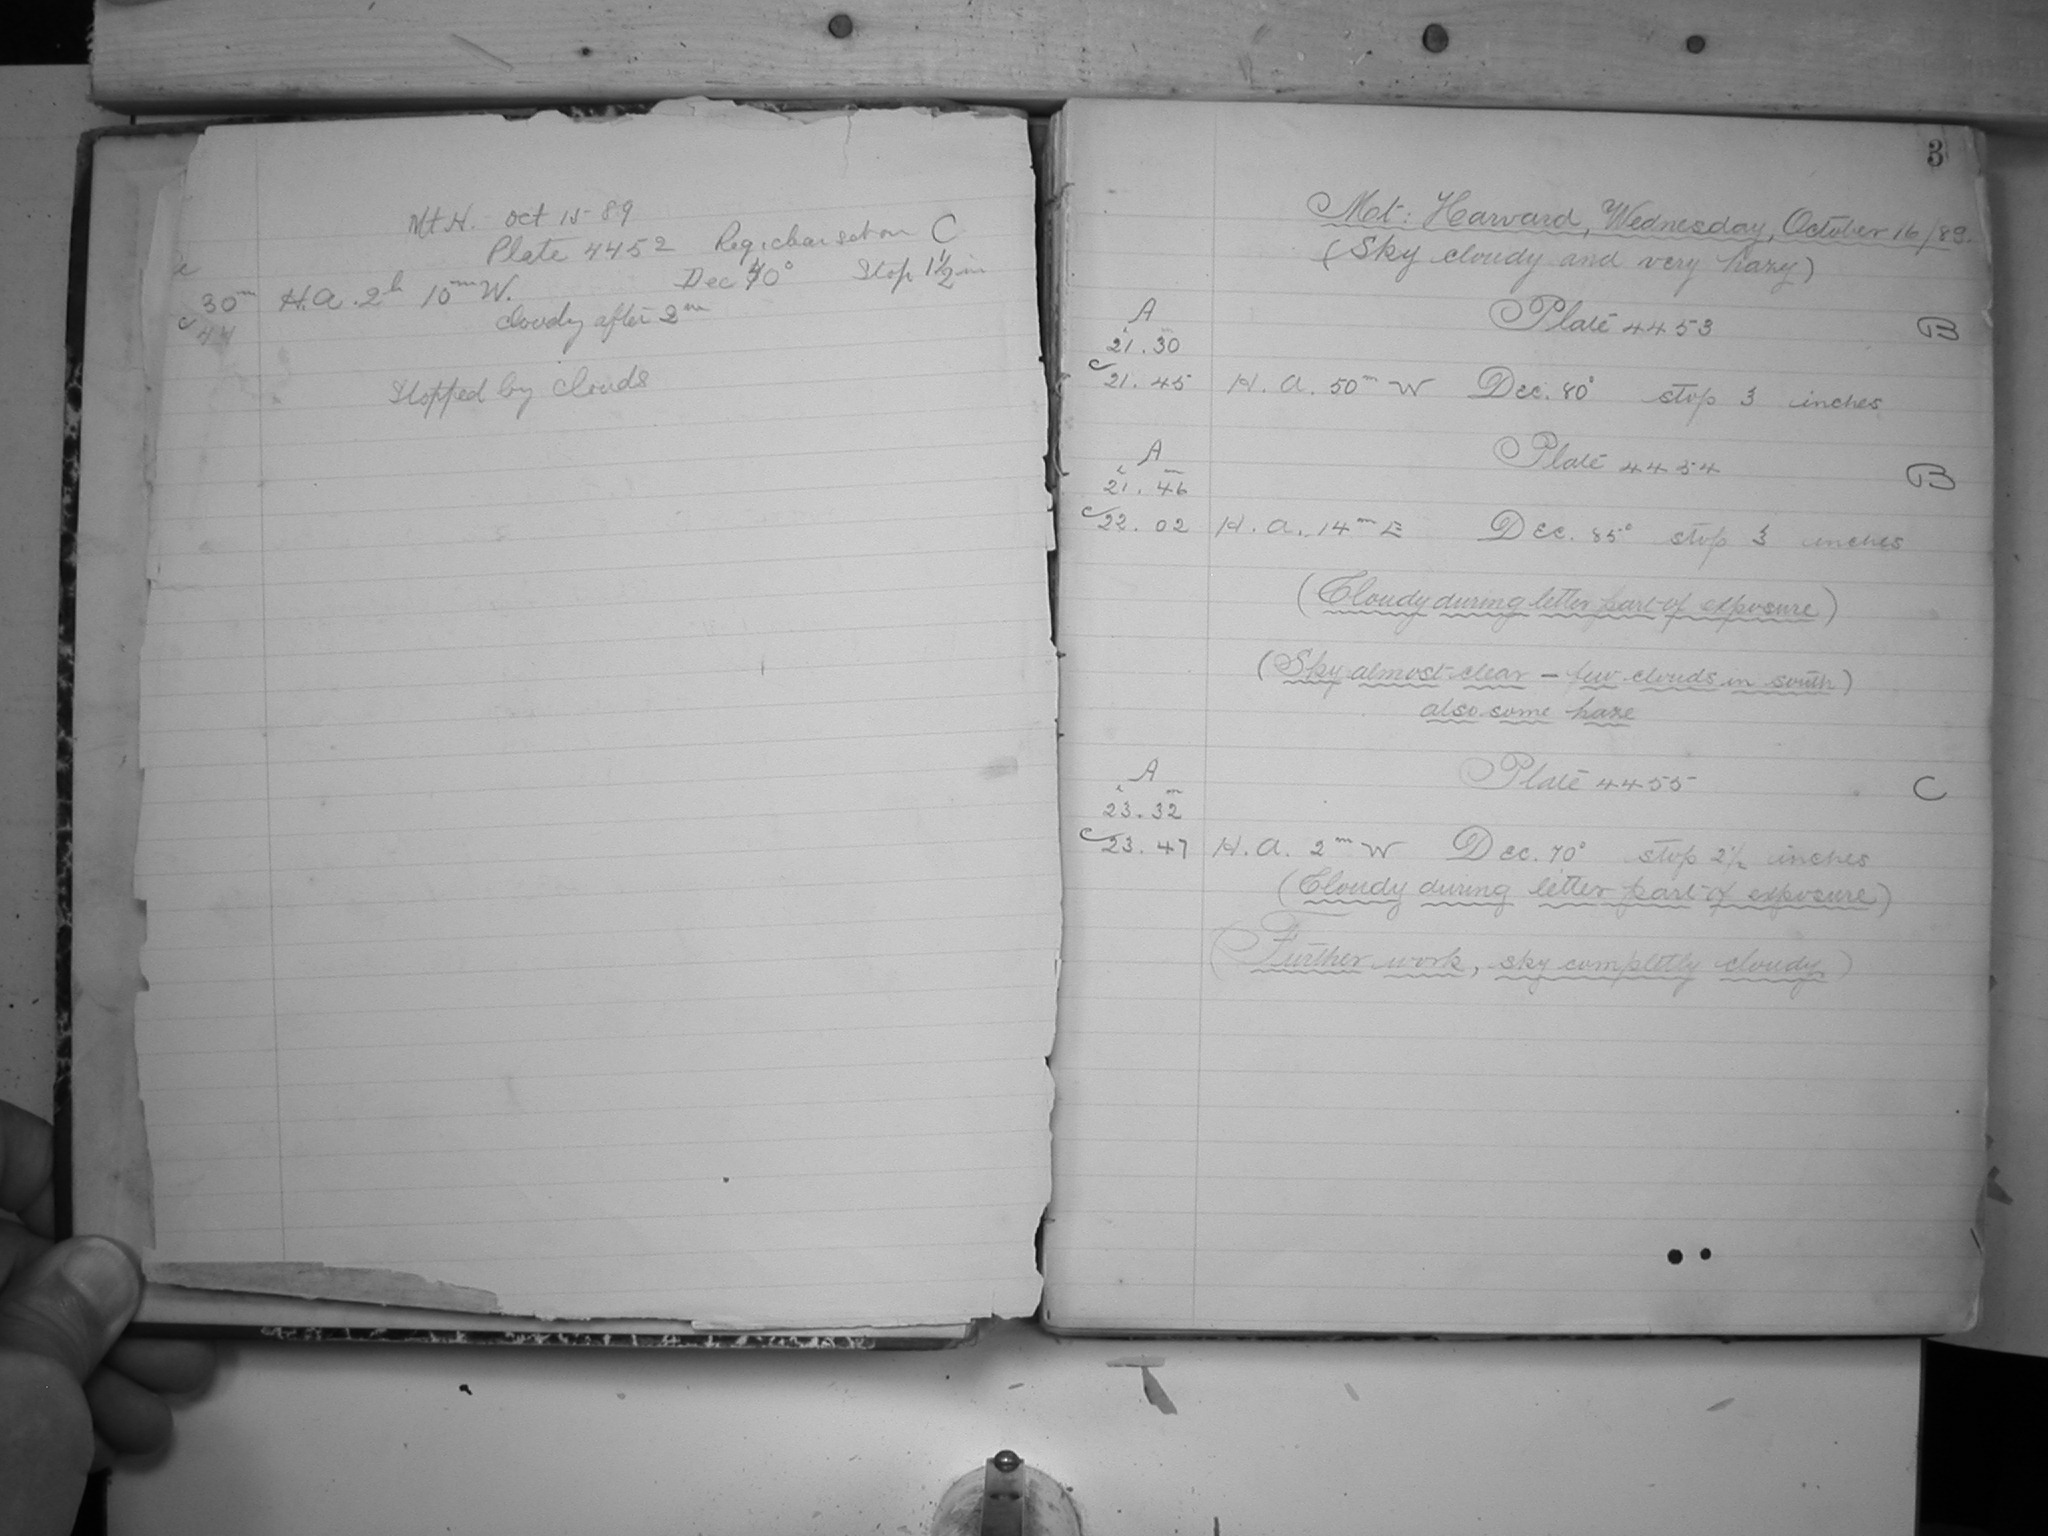 Mt H. Oct 15-89
Plate 4452 C
30m H.A. 2h 10m W. Dec 40° Stop 1½ in
44 Cloudy after 2m
Stopped by clouds
3
Mt: Harvard, Wednesday, October 16/89.
(Sky cloudy and very hazy)
A Plate 4453 B
21.30
21.45 H.A. 50m W Dec. 80° stop 3 inches
A Plate 4454 B
21.46
22.02 H.A. 14m E Dec. 85° stop 3 inches
(Cloudy during letter part of exposure)
(Sky almost clear – few clouds in south)
also some haze
A Plate 4455 C
23.32
23.47 H.A. 2m W Dec. 70° stop 2½ inches
(Cloudy during letter part of exposure)
(Further work, sky completly cloudy)